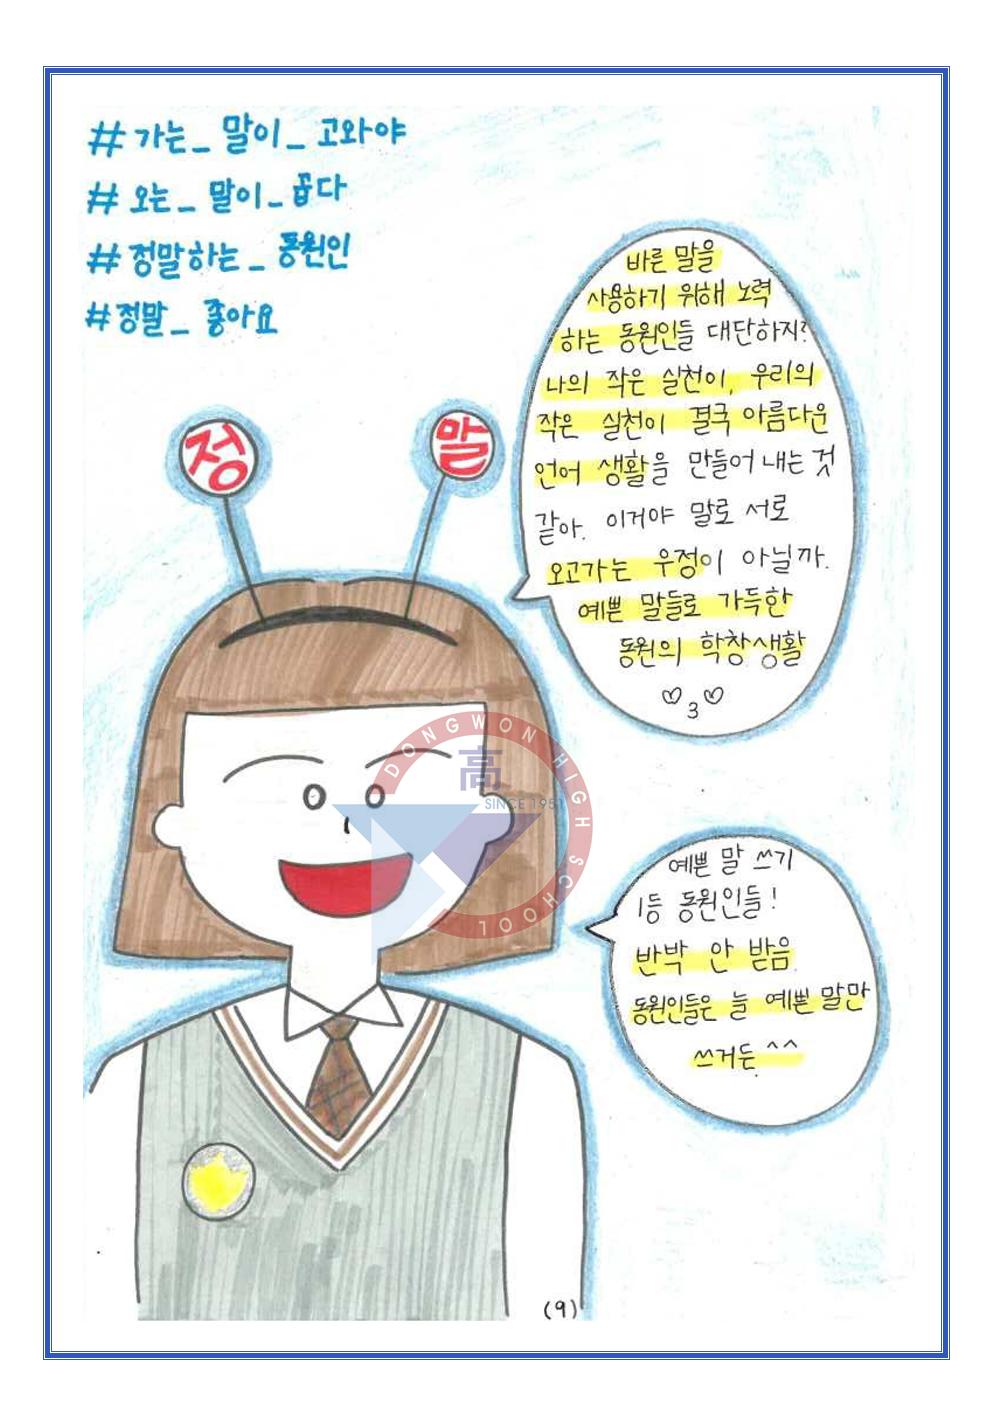 #가는_말이_고와야
#오는_말이_곱다
#정말하는_동원인
#정말_좋아요
바른 말을
사용하기 위해 노력
하는 동원인들 대단하지?
나의 작은 실천이, 우리의
작은 실천이 결국 아름다운
언어 생활을 만들어 내는 것
같아. 이거야 말로 서로
오고가는 우정이 아닐까.
예쁜 말들로 가득한
동원의 학창생활
♡3♡
정 말
DONGWON HIGH SCHOOL
高
SINCE 1951
예쁜 말 쓰기
1등 동원인들!
반박 안 받음
동원인들은 늘 예쁜 말만
쓰거든.^^
(9)